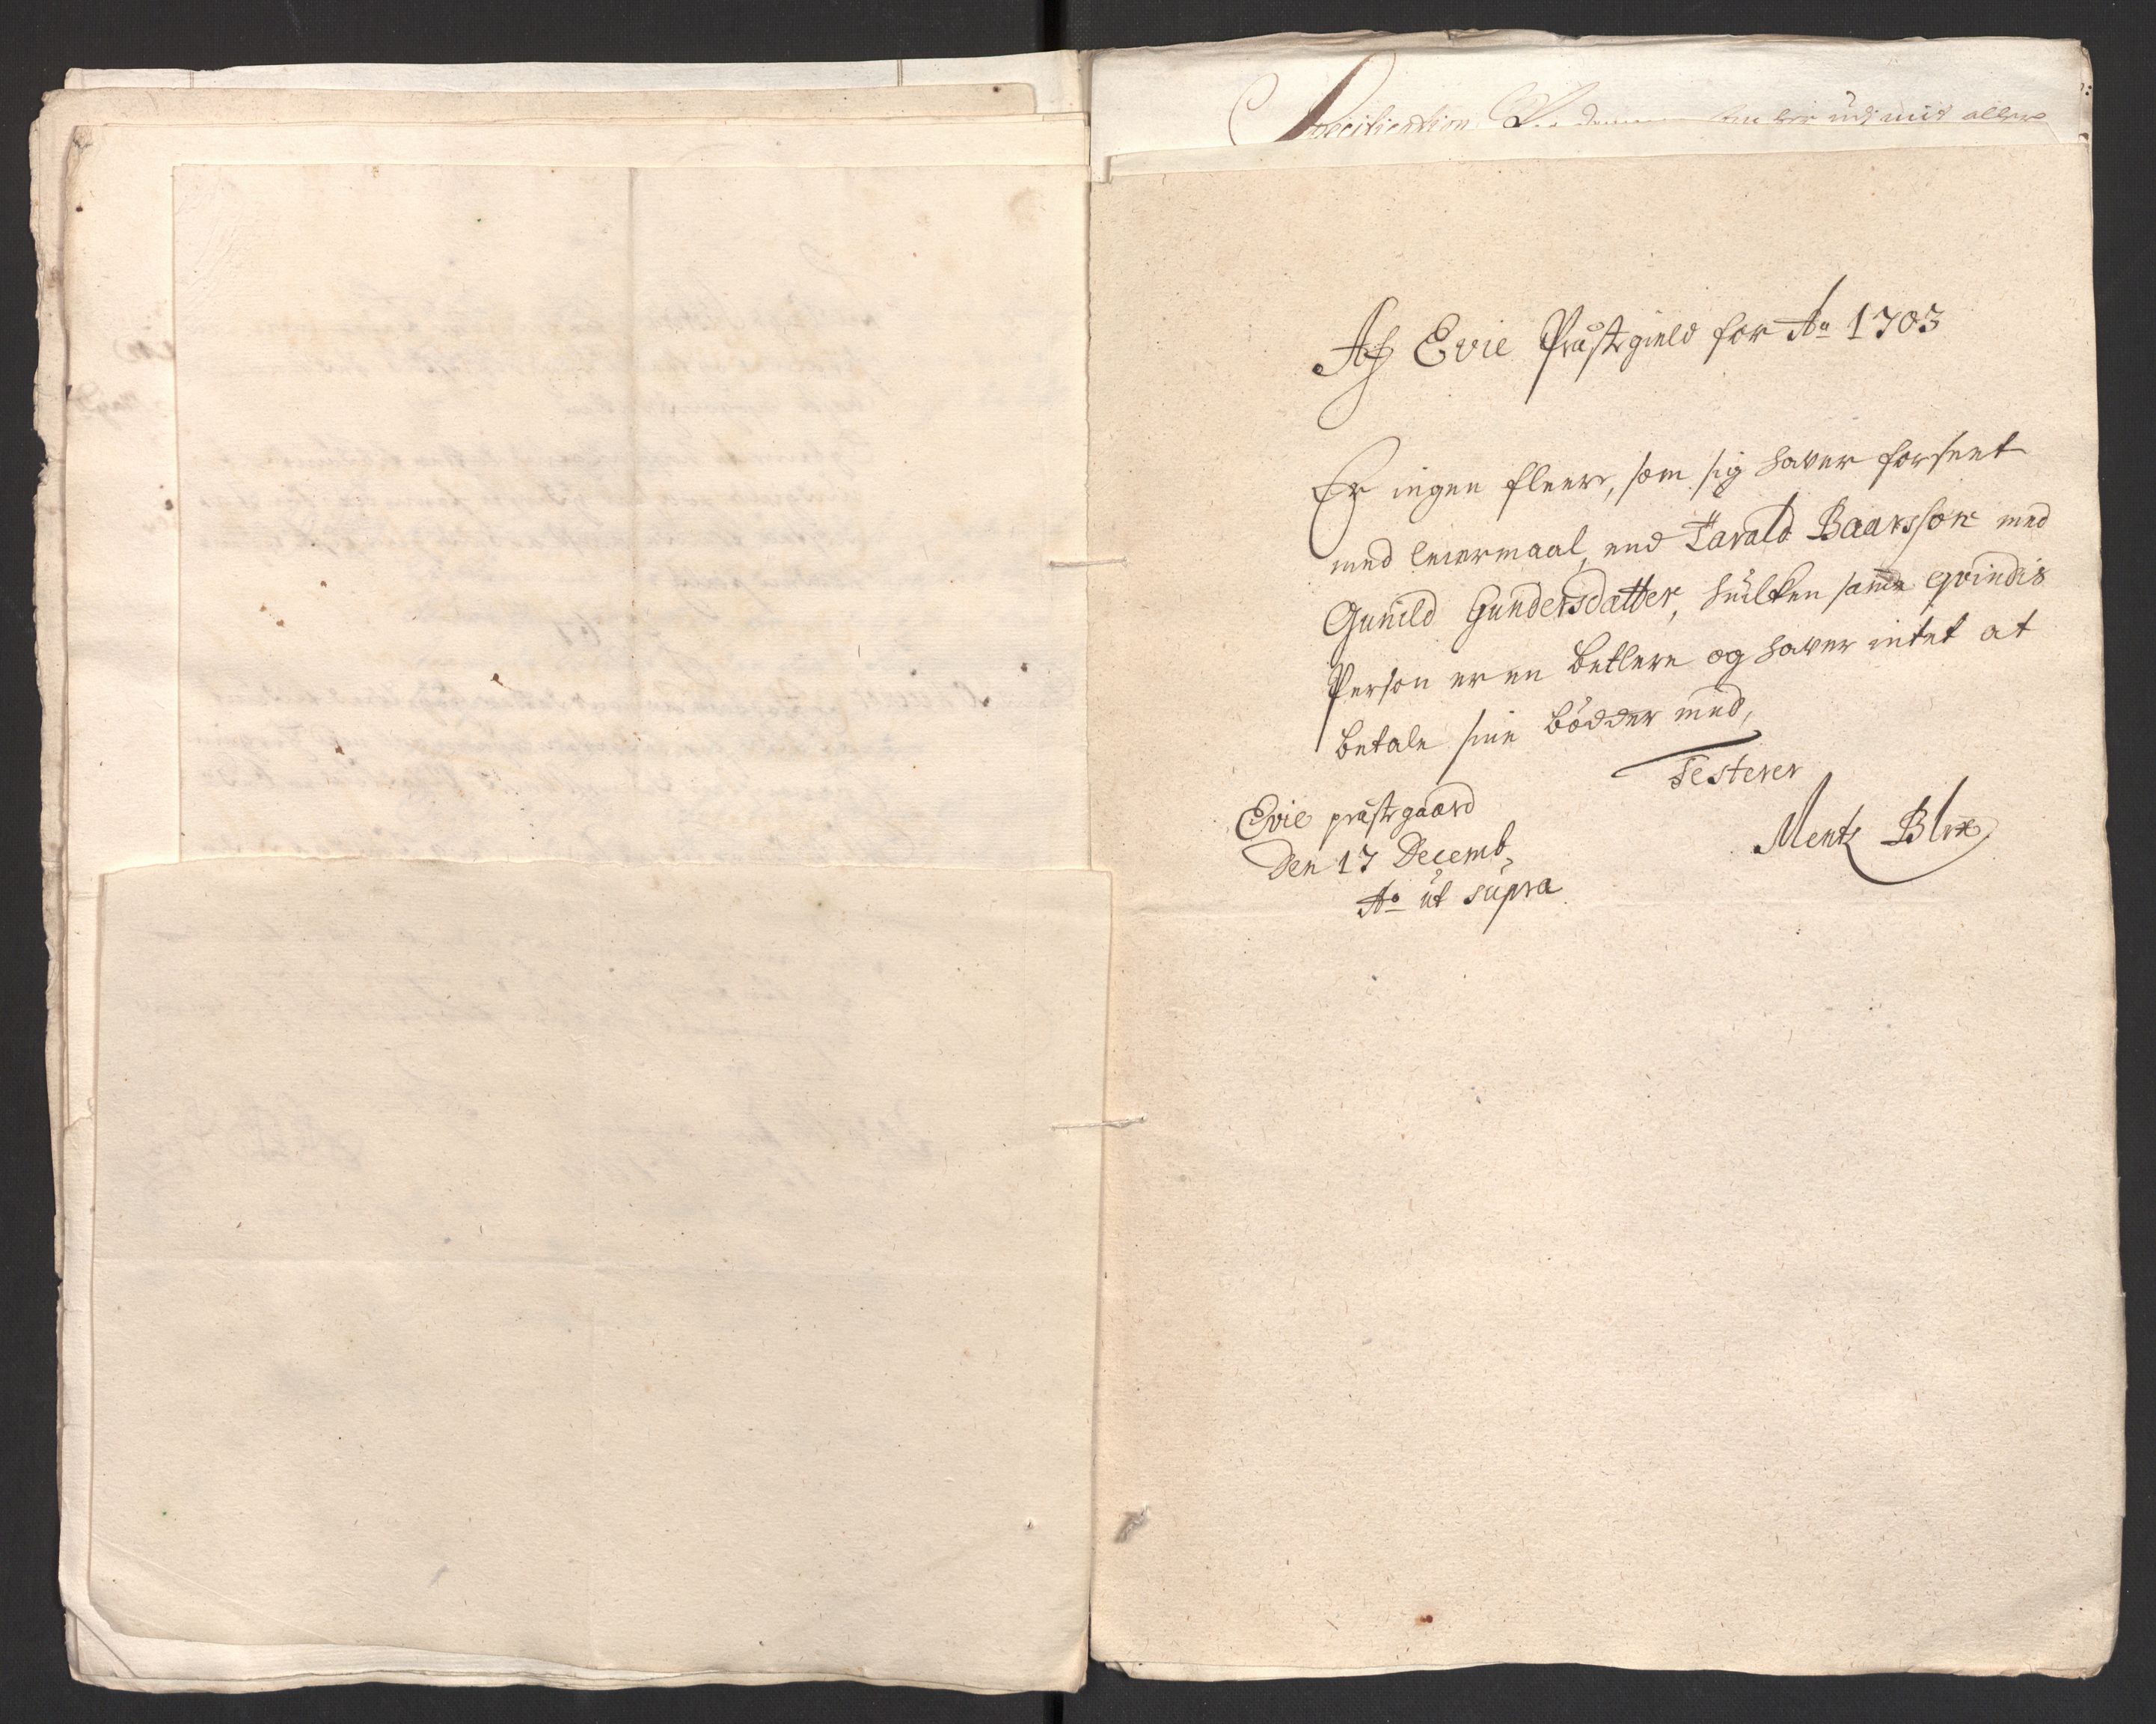 Specification
Af Evie Præstegield for Ao 1703
Er ingen fleere, som sig haver forseet
med leiermaal, end Tarald Baarsson med
Gunild Gundersdatter, huilken samme qvindis
Person er en betlere og haver intet at
betale sine bödder med,
Testerer
Evie præstegaard
Den 17 Decemb,
Ao ut supra
Mentz